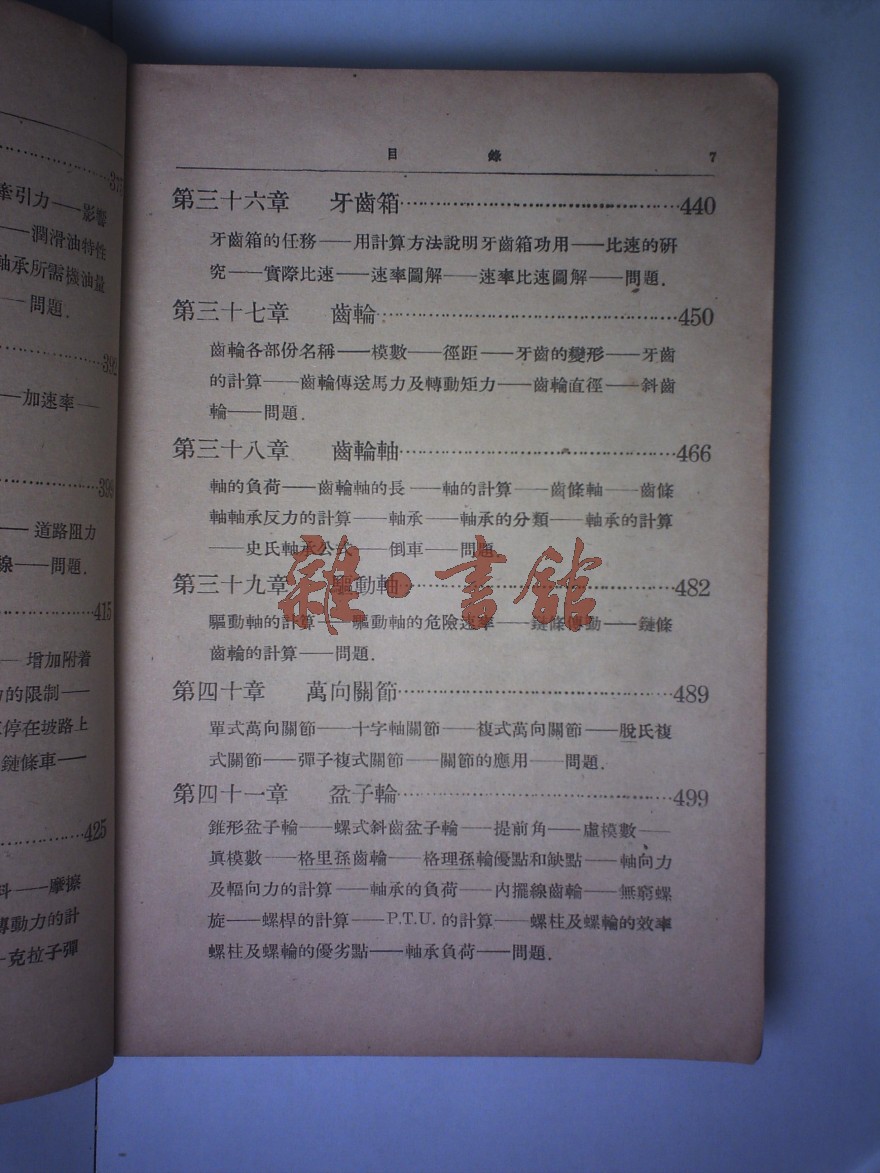 377
牽引力——影響
——潤滑油特性
軸承所需機油量
——問題.
392
——加速率——
398
——道路阻力
線——問題.
415
——增加附着
力的限制——
停在坡路上
鏈條車——
425
料——摩擦
傳動力的計
克拉子彈
目 錄 7
第三十六章 牙齒箱……440
牙齒箱的任務——用計算方法說明牙齒箱功用——比速的研
究——實際比速——速率圖解——速率比速圖解——問題.
第三十七章 齒輪……450
齒輪各部份名稱——模數——徑距——牙齒的變形——牙齒
的計算——齒輪傳送馬力及轉動矩力——齒輪直徑——斜齒
輪——問題.
第三十八章 齒輪軸……466
軸的負荷——齒輪軸的長——軸的計算——齒條軸——齒條
軸軸承反力的計算——軸承——軸承的分類——軸承的計算
——史氏軸承公式——倒車——問題.
第三十九章 驅動軸……482
驅動軸的計算——驅動軸的危險速率——鏈條傳動——鏈條
齒輪的計算——問題.
第四十章 萬向關節……489
單式萬向關節——十字軸關節——複式萬向關節——脫氏複
式關節——彈子複式關節——關節的應用——問題.
第四十一章 盆子輪……499
錐形盆子輪——螺式斜齒盆子輪——提前角——虛模數——
眞模數——格里孫齒輪——格理孫輪優點和缺點——軸向力
及幅向力的計算——軸承的負荷——內擺線齒輪——無窮螺
旋——螺桿的計算——P.T.U. 的計算——螺柱及螺輪的效率
螺柱及螺輪的優劣點——軸承負荷——問題.
雜·書館